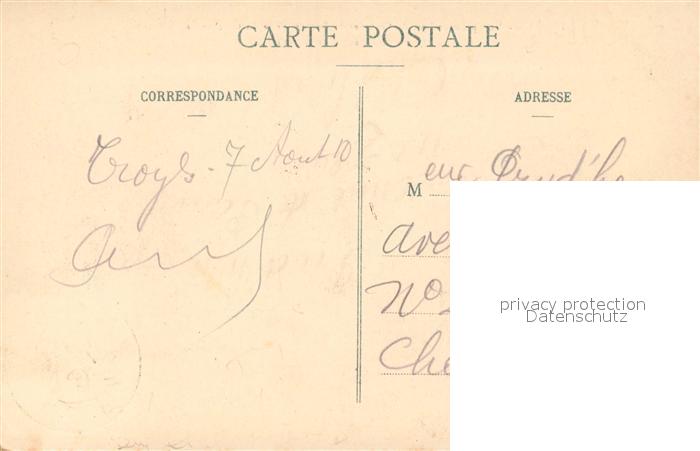 CARTE POSTALE
CORRESPONDANCE
Troyes - 7 Aout 10
ADRESSE
M eur
Ave
No
Che
privacy protection
Datenschutz